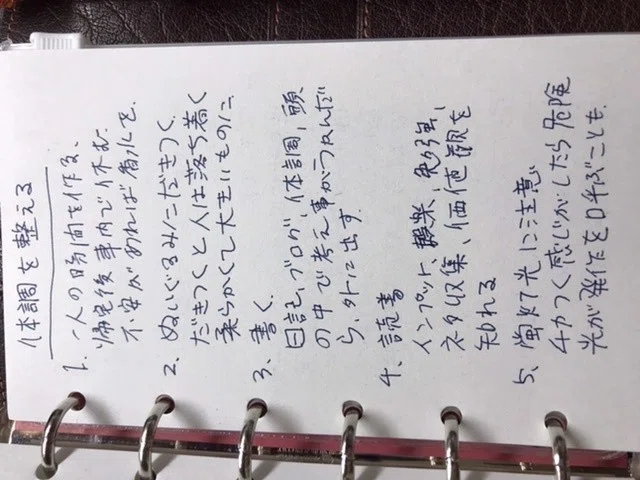 体調を整える
1. 一人の時間を作る、
帰宅後車内で休む
不安があれば省水を、
2、ぬいぐるみにだきつく、
だきつくと人は落ち着く
柔らかくて大きいものに
3、書く、
日記、ブログ、体調、頭
の中で考え事がうかんだ
ら、外に出す
4、読書
インプット、娯楽、勉強、
ネタ収集、価値観を
知れる
5、蛍灯光に注意
チカつく感じがしたら危険
光が発作を呼ぶことも、